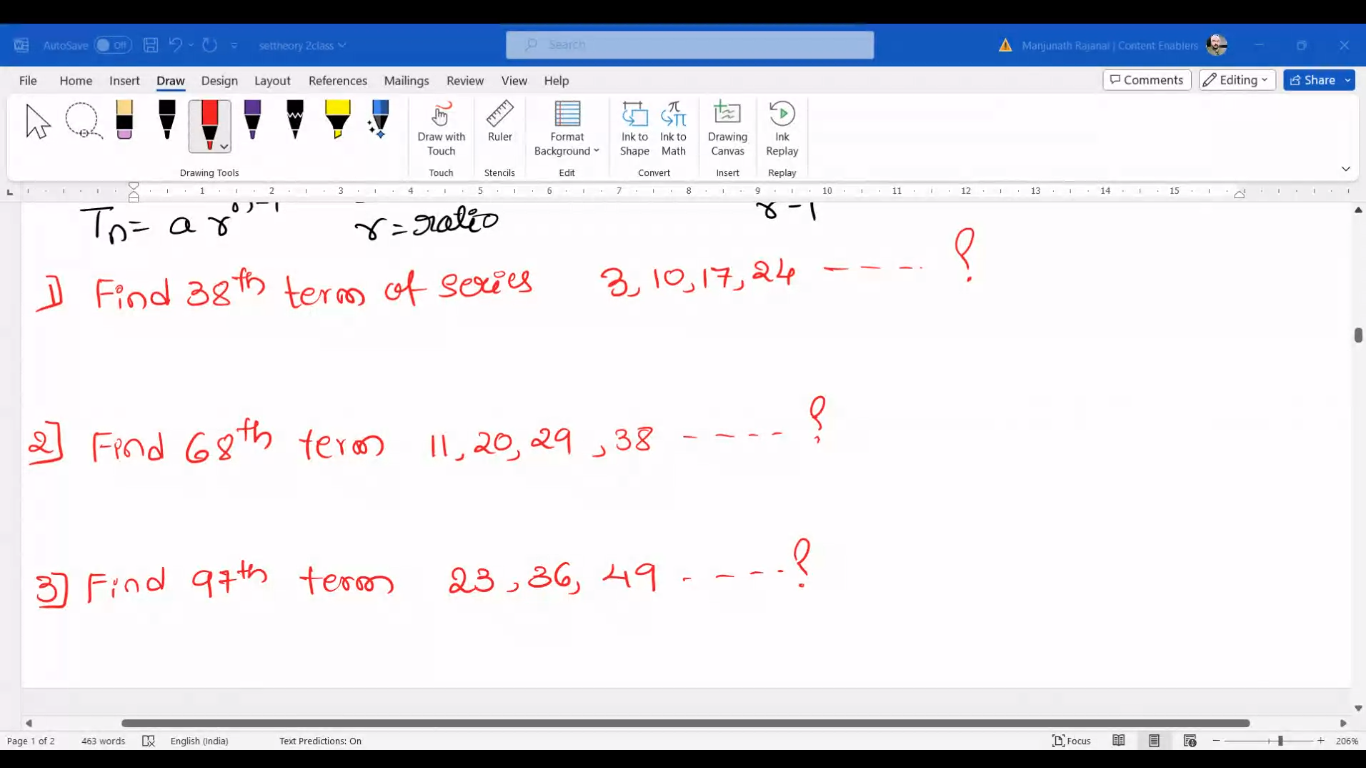 AutoSave Off settheory 2class Search Manjunath Rajanal | Content Enablers
File Home Insert Draw Design Layout References Mailings Review View Help Comments Editing Share
Draw with Touch Ruler Format Background Ink to Shape Ink to Math Drawing Canvas Ink Replay
Drawing Tools Touch Stencils Edit Convert Insert Replay
1 2 3 4 5 6 7 8 9 10 11 12 13 14 15
Tn = a r^n-1 r = ratio r-1
1) Find 38th term of series 3, 10, 17, 24 ---- ?
2] Find 68th term 11, 20, 29, 38 ---- ?
3] Find 97th term 23, 36, 49 ---- ?
Page 1 of 2 463 words English (India) Text Predictions: On Focus 206%